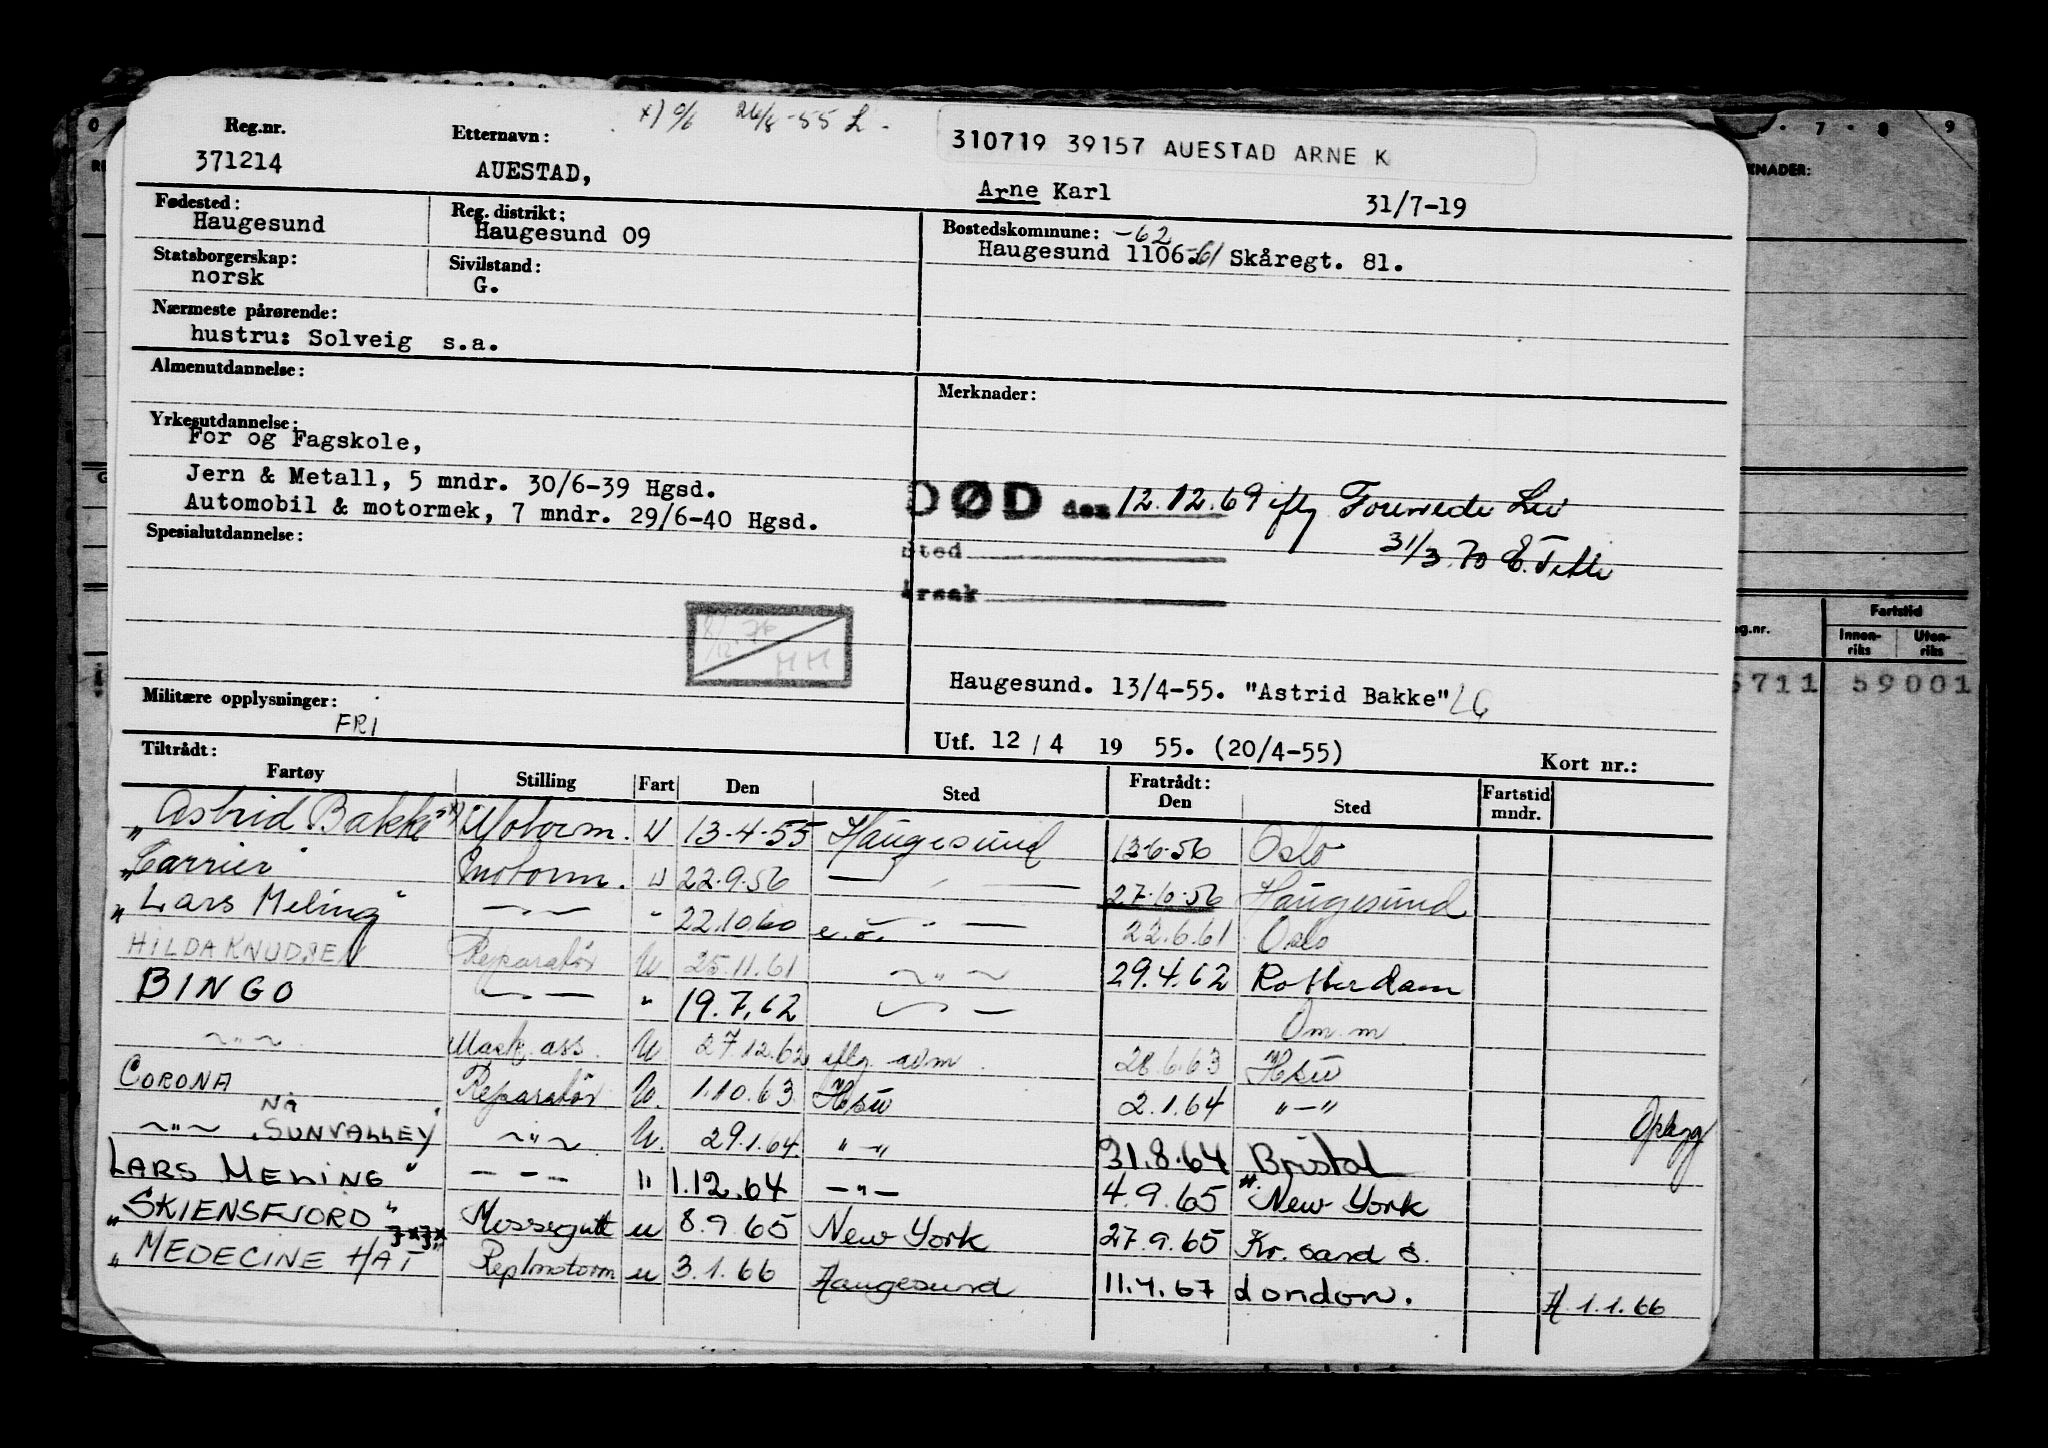 x) o/s 26/8-55 L.
310719 39157 AUESTAD ARNE K
Reg.nr. Etternavn:
371214 AUESTAD, Arne Karl 31/7-19
Fødested: Reg. distrikt: Bostedskommune: -62
Haugesund Haugesund 09 Haugesund 1106-61 Skåregt. 81.
Statsborgerskap: Sivilstand:
norsk G.
Nærmeste pårørende:
hustru: Solveig s.a.
Almenutdannelse: Merknader:
Yrkesutdannelse:
For og Fagskole,
Jern & Metall, 5 mndr. 30/6-39 Hgsd.
Automobil & motormek, 7 mndr. 29/6-40 Hgsd.
DØD den 12.12.69 iflg
31/3.70
Spesialutdannelse:
sted
årsak
HH
Haugesund. 13/4-55. "Astrid Bakke"
Militære opplysninger:
FRI
Utf. 12 / 4 19 55. (20/4-55) Kort nr.:
Tiltrådt: Fratrådt:
Fartøy Stilling Fart Den Sted Den Sted Fartstid mndr.
"Astrid Bakke" x) Motorm. U 13-4-55 Haugesund 13-6-56 Oslo
"Carrier" Motorm. U 22.9.56 — " — 27-10-56 Haugesund
"Lars Meling" — " — " 22.10.60 e.o. — " — 22.6.61 Oslo
HILDA KNUDSEN Reparatør U 25.11.61 ~ " ~ 29.4.62 Rotterdam
BINGO — " — " 19.7.62 — " — Om.m.
~ " ~ Mask. ass. U 27.12.62 iflg. avm. 28.6.63 Hsu
CORONA Reparatør U. 1.10.63 Hsu 2.1.64 " — "
~ " ~ Nå "SUNVALLEY" ~ " ~ U. 29.1.64 " — " 31.8.64 Bristol Opbygg
LARS MELING" — " — " 1.12.64 — " — 4.9.65 "New York
"SKIENSFJORD" Messegutt u 8.9.65 New York 27.9.65 Kr. sand S.
"MEDECINE HAT" Rep/motorm u 3.1.66 Haugesund 11.4.67 London. H 1.1.66
7 . 8 9
KNADER:
Fartstid
g.nr. Innen-riks Uten-riks
5711 59001